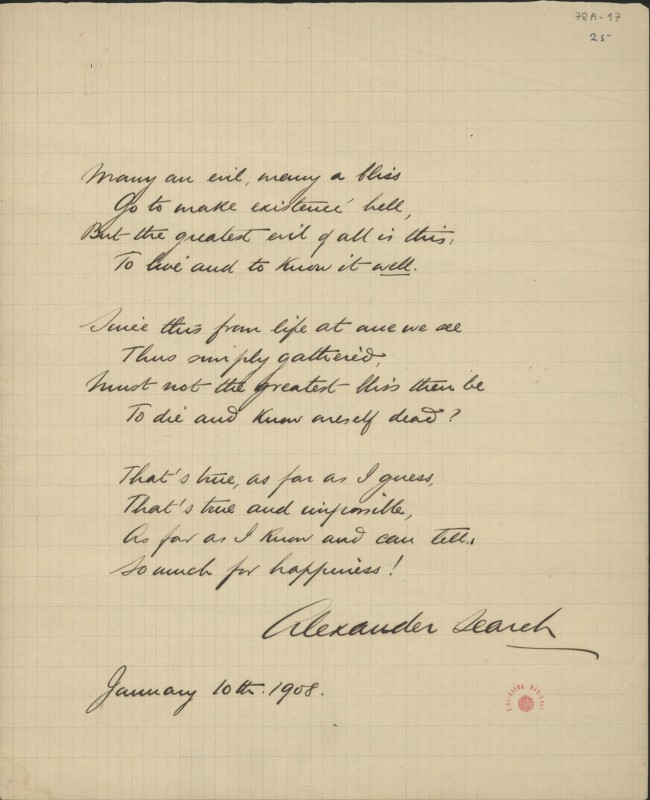 78A-17
25
Many an evil, many a bliss
Go to make existence hell,
But the greatest evil of all is this:
To live and to know it well.
Since this from life at once we see
Thus simply gathered,
Must not the greatest bliss then be
To die and know oneself dead?
That's true, as far as I guess,
That's true and impossible,
As far as I know and can tell.
So much for happiness!
Alexander Search
January 10th. 1908.